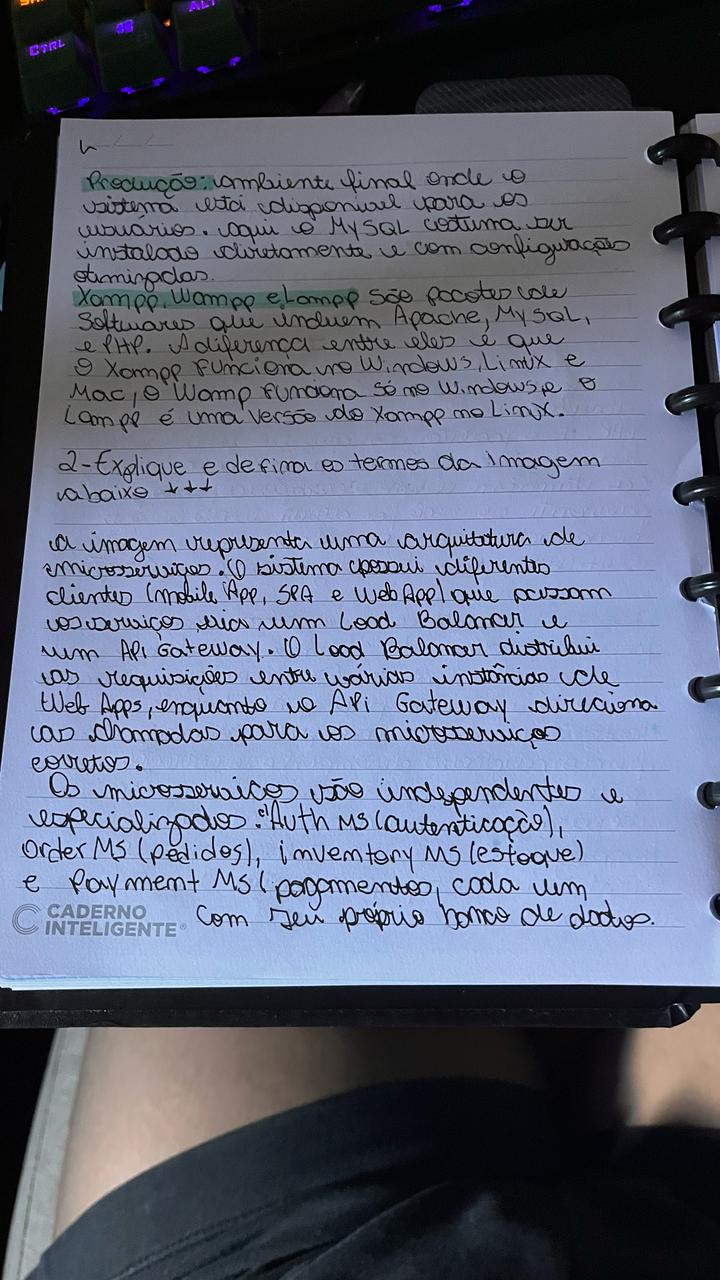 CTRL
ALT
Produção: ambiente final onde o
sistema está disponivel para os
usuários. aqui o MySQL costuma ser
instalado diretamente e com configurações
otimizadas.
Xampp, Wampp e Lampp são pacotes de
Softwares que incluem Apache, MySQL,
e PHP. A diferença entre eles é que
o Xampp funciona no Windows, Linux e
Mac, o Wamp funciona só no Windows, e o
Lampp é uma versão do Xampp no Linux.
2-Explique e defina os termos da imagem
abaixo ↓↓↓
a imagem representa uma arquitetura de
microsserviços. O sistema possui diferentes
clientes (mobile App, SPA e Web App) que acessam
os serviços via um Load Balancer e
um APi Gateway. O Load Balancer distribui
as requisições entre várias instâncias de
Web Apps, enquanto o APi Gateway direciona
as chamadas para os microsserviços
corretos.
Os microsserviços são independentes e
especializados: "Auth MS (autenticação),
order MS (pedidos), inventory MS (estoque)
e Payment MS (pagamentos, cada um
com seu próprio banco de dados.
CADERNO
INTELIGENTE®